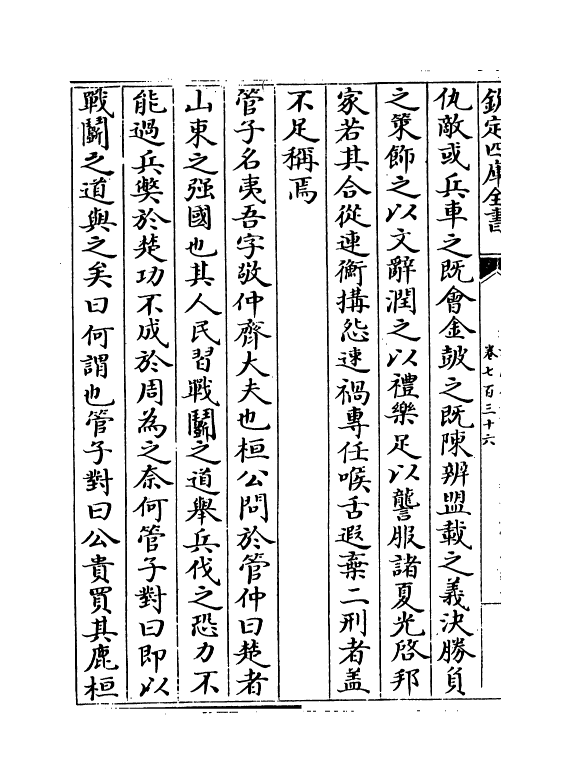 欽定四庫全書
卷七百三十六
仇敵或兵車之既會金鼓之既陳辨盟載之義決勝負
之策飾之以文辭潤之以禮樂足以讋服諸夏光啓邦
家若其合從連衡搆怨速禍專任喉舌遐棄二刑者盖
不足稱焉
管子名夷吾字敬仲齊大夫也桓公問於管仲曰楚者
山東之强國也其人民習戰鬭之道舉兵伐之恐力不
能過兵獘於楚功不成於周為之奈何管子對曰即以
戰鬭之道與之矣曰何謂也管子對曰公貴買其鹿桓